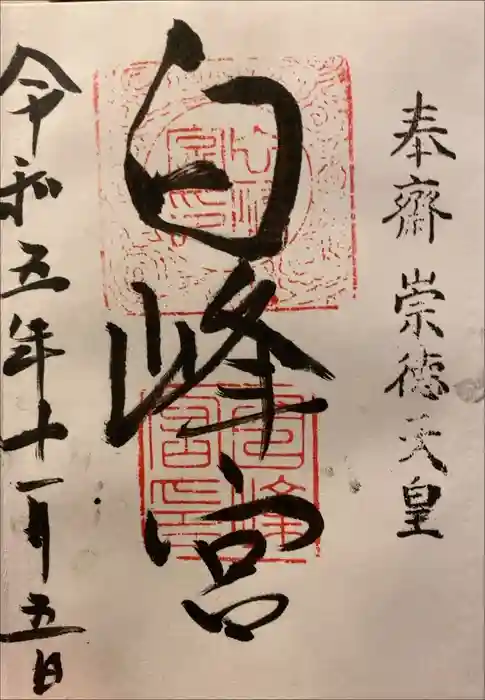 奉齋 崇徳天皇
白峰宮
令和五年十一月五日